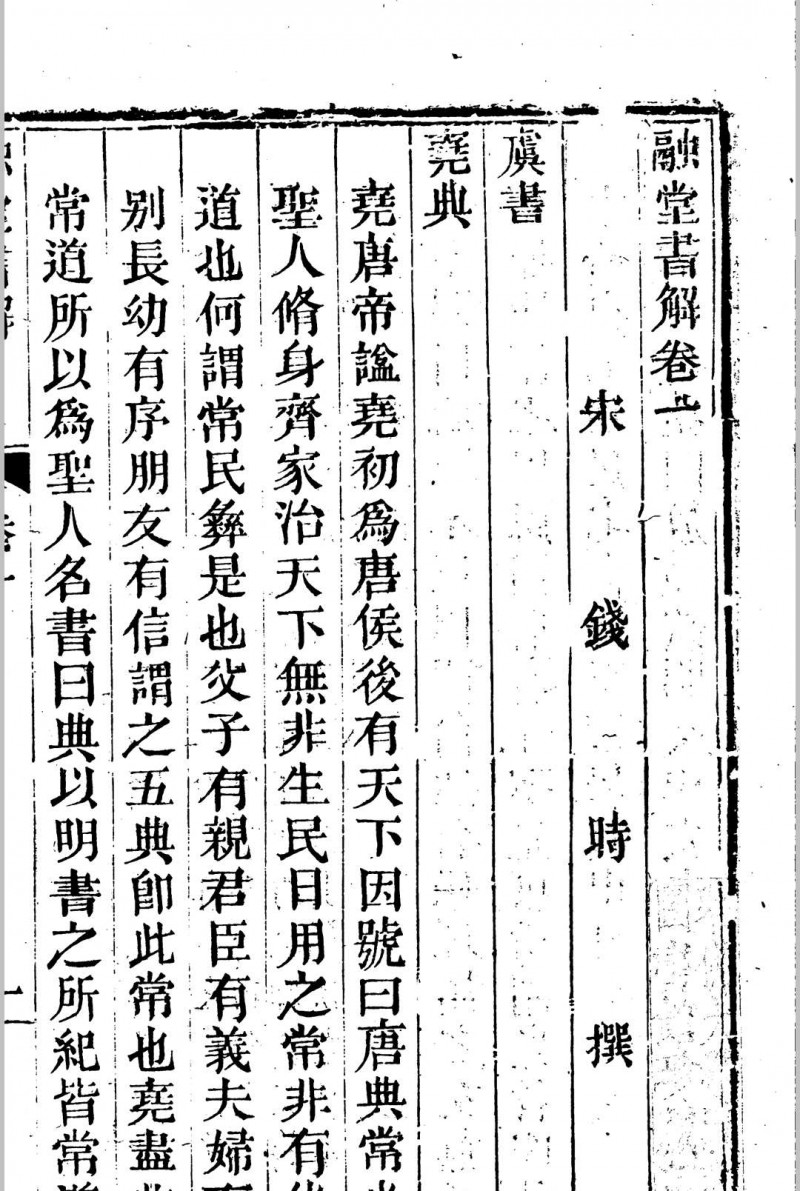 融堂書解卷一
宋 錢 時 撰
虞書
堯典
堯唐帝諡堯初爲唐侯後有天下因號曰唐典常
聖人脩身齊家治天下無非生民日用之常非有
道也何謂常民彝是也父子有親君臣有義夫婦
別長幼有序朋友有信謂之五典卽此常也堯盡
常道所以爲聖人名書曰典以明書之所紀皆常
卷一
二